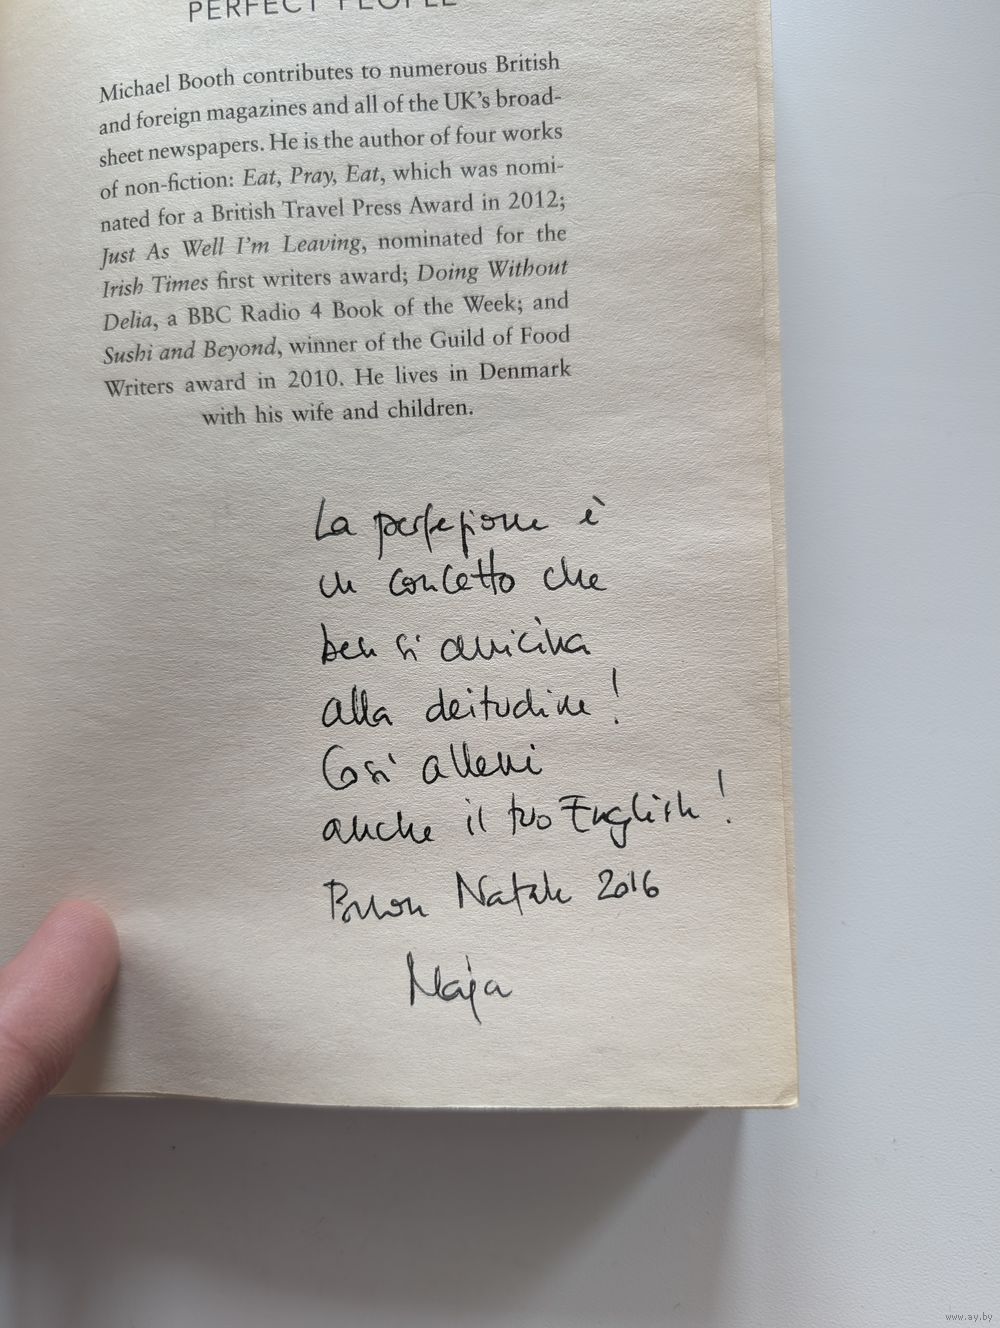 PERFECT PEOPLE
Michael Booth contributes to numerous British
and foreign magazines and all of the UK's broad-
sheet newspapers. He is the author of four works
of non-fiction: Eat, Pray, Eat, which was nomi-
nated for a British Travel Press Award in 2012;
Just As Well I'm Leaving, nominated for the
Irish Times first writers award; Doing Without
Delia, a BBC Radio 4 Book of the Week; and
Sushi and Beyond, winner of the Guild of Food
Writers award in 2010. He lives in Denmark
with his wife and children.
La perfezione è
un concetto che
ben si avvicina
alla
Così alleni
anche il tuo English!
Buon Natale 2016
www.ay.by